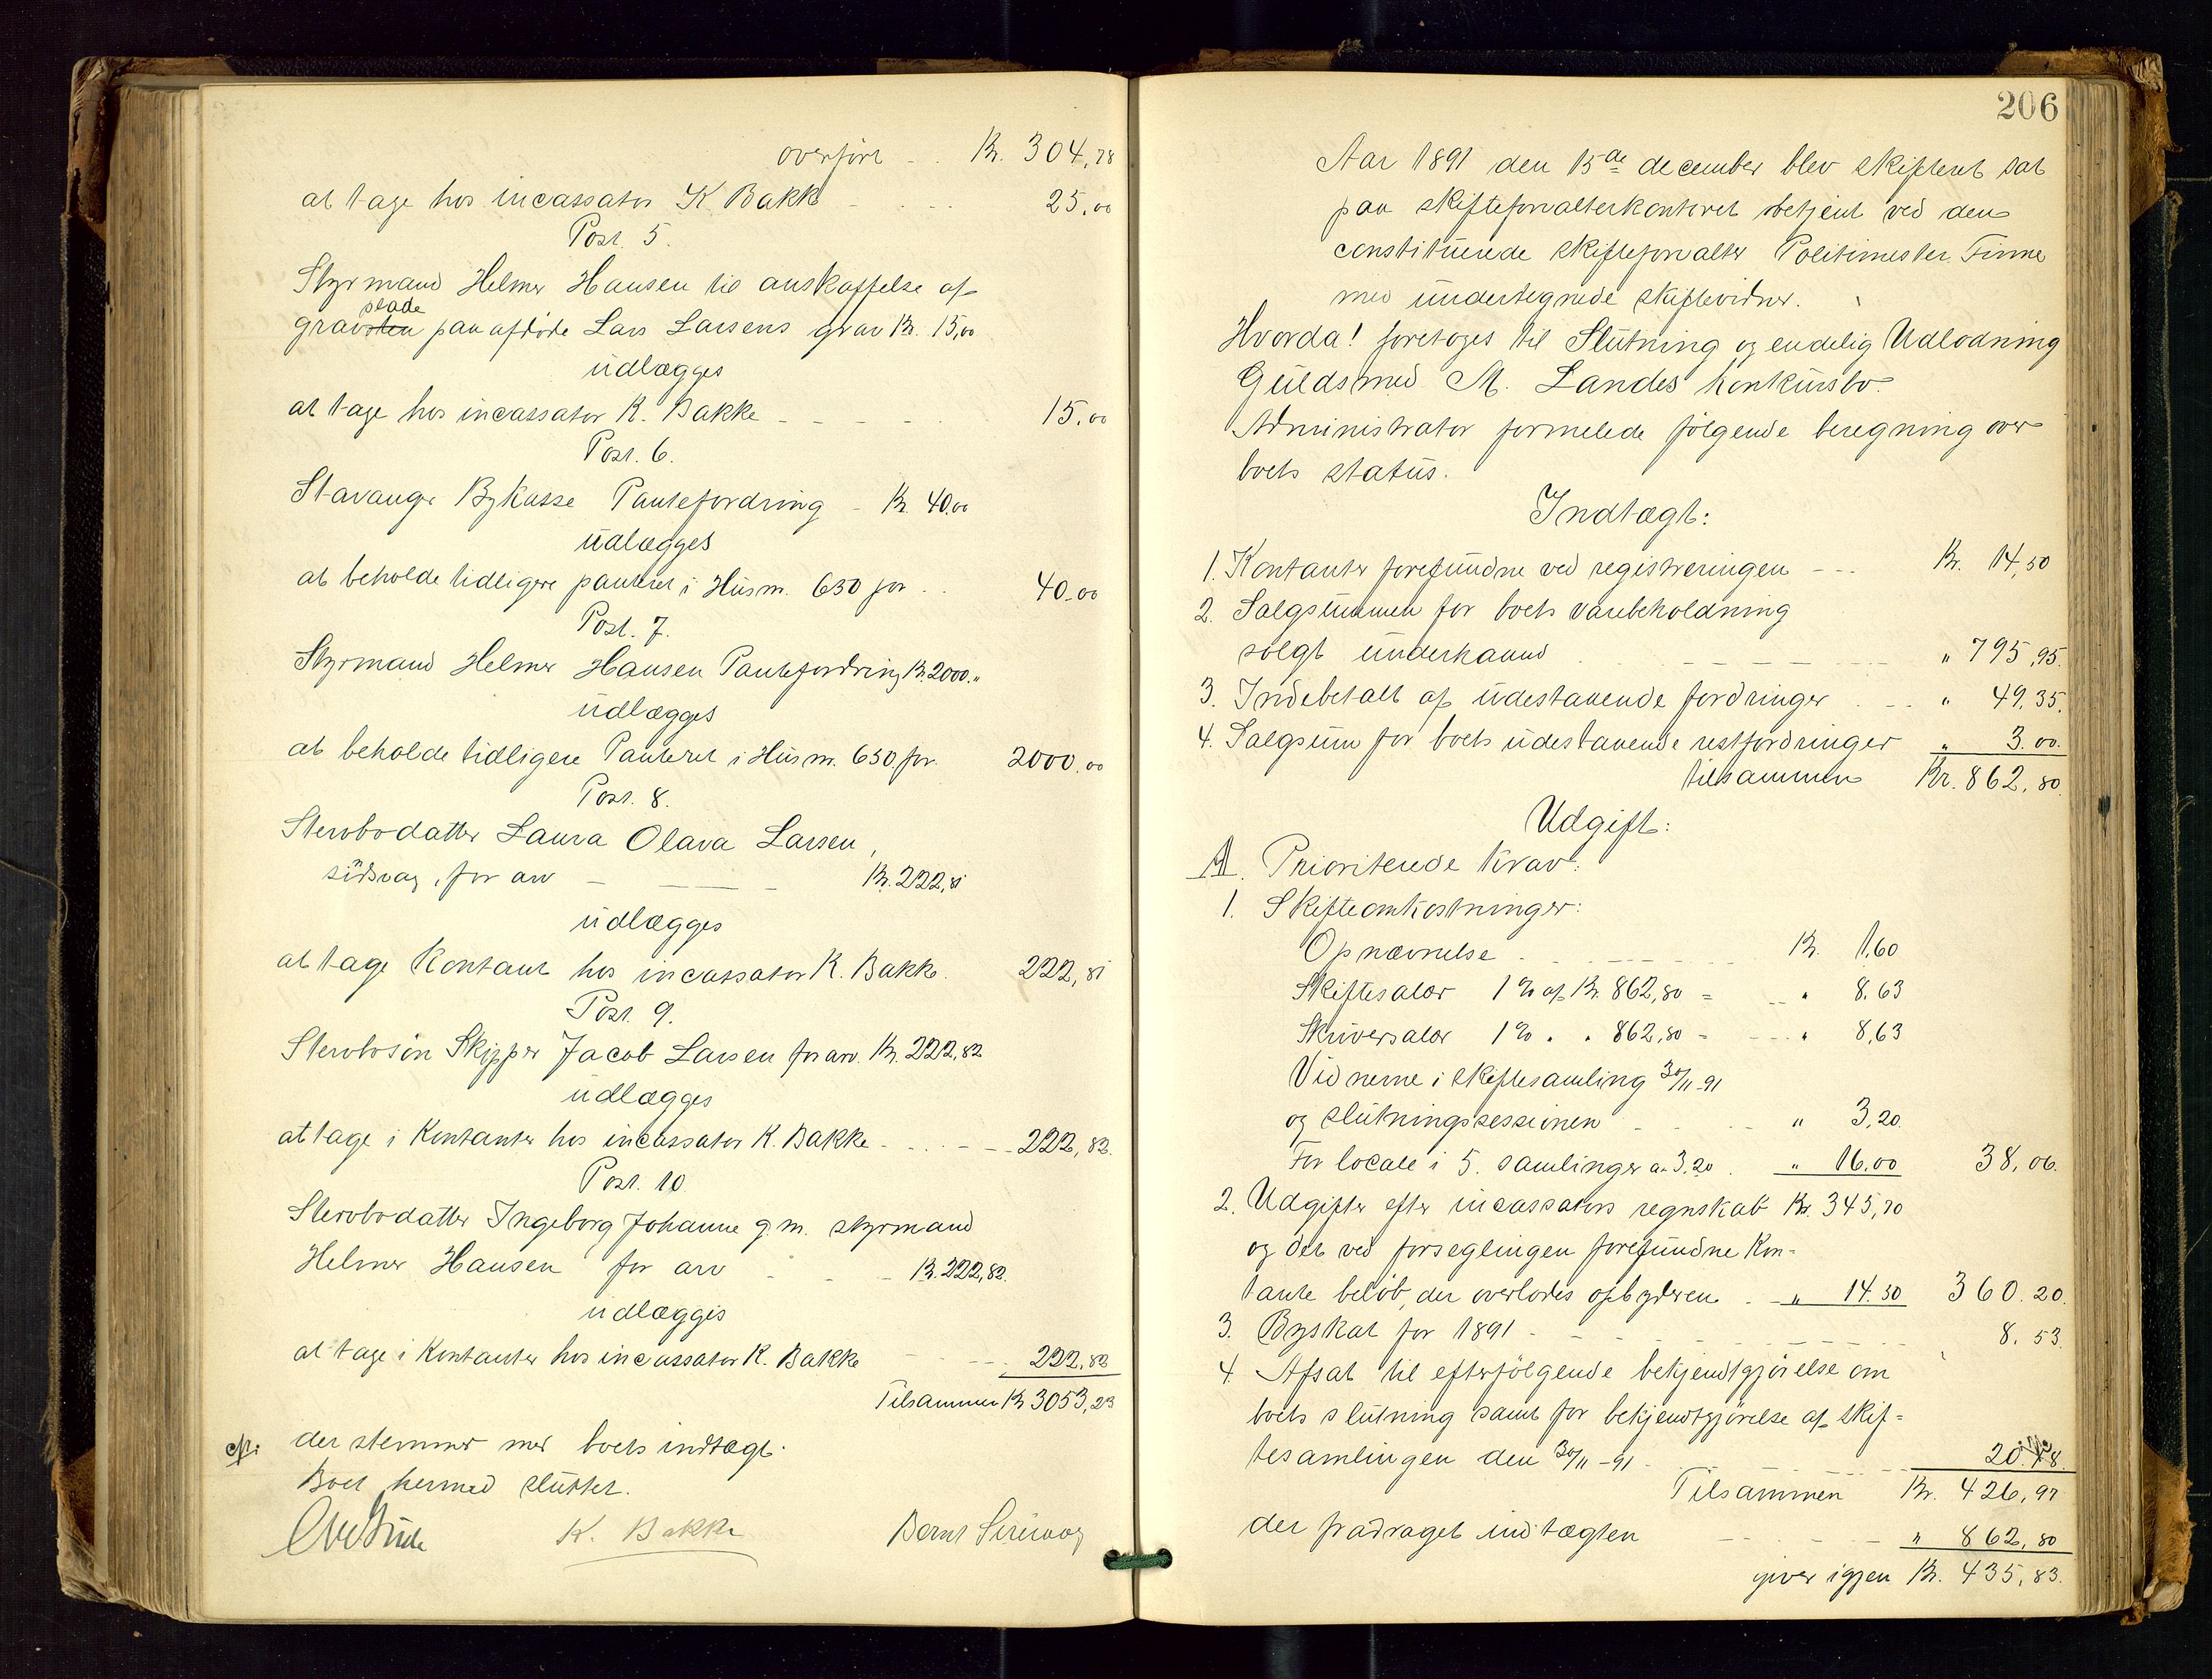 overført - . . Kr. 304,78
at tage hos incassator K Bakke - . . . . 25,00
Post. 5.
Styrmand Helmer Hansen til anskaffelse af
plade
gravsten paa afdøde Lars Larsens grav Kr. 15,00
udlægges
at tage hos incassator K. Bakke - - - - - 15,00
Post. 6.
Stavanger Bykasse Pantefordring - Kr. 40.00
udlægges
at beholde tidligere panteret i Husm. 630 for . . 40.00
Post. 7.
Styrmand Helmer Hansen Pantefordring Kr. 2000."
udlægges
at beholde tidligere Panteret i Hus m. 630. for. 2000.00
Post. 8.
Stervbodatter Laura Olava Larsen,
sidsvag, for arv - - - Kr. 222,81
udlægges
at tage Kontant hos incassator K. Bakke. 222,81
Post. 9.
Stervbosøn Skipper Jacob Larsen for arv. Kr. 222,82
udlægges
at tage i Kontanter hos incassator K. Bakke - . . - - - 222,82.
Post. 10
Stervbodatter Ingeborg Johanne g. m. styrmand
Helmer Hansen for arv - - - Kr. 222,82.
udlægges
at tage i Kontanter hos incassator K. Bakke - - - - 222,82
Tilsammen Kr 3053,23
der stemmer med boets indtægt.
Boet hermed sluttet.
K. Bakke
206
Aar 1891 den 15de december blev skifteret sat
paa skifteforvalterkontoret betjent ved den
constituerede skifteforvalter Politimester Finne
med undertegnede skiftevidner.
Hvorda! foretoges til Slutning og endelig Udlodning
Guldsmed M. Landes konkursbo.
Administrator formelede følgende beregning over
boets status.
Indtægt:
1. Kontanter forefundne ved registreringen - - - Kr. 14,50
2. Salgsummen for boets varebeholdning
solgt underhaand . - - - - - " 795,95.
3. Indebetalt af udestaaende fordringer . - - " 49.35.
4. Salgsum for boets udestaaende restfordringer " 3.00.
tilsammen Kr. 862,80.
Udgift:
A. Prioriterede krav:
1. Skifteomkostninger:
Opnævnelse . . - - - - - Kr. 1,60
Skiftesalær 1 % af Kr. 862,80 = - - " 8.63
Skriversalær 1 % . . 862,80 - - - - " 8,63
Vidnerne i skiftesamling 30/11-91
og slutningssessionen - . - - - " 3,20.
For locale i 5. samlinger a 3.20 . " 16.00 38,06.
2. Udgifter efter incassators regnskab Kr. 345,70
og det ved forseglingen forefundne Kon-
tante beløb, der overlodes opbyderen - " 14.50 360.20.
3. Byskat for 1891 - - - - - 8.53.
4. Afsat til efterfølgende bekjendtgjørelse om
boets slutning samt for bekjendtgjørelse af skif-
tesamlingen den 30/11-91 - - - 20.18.
Tilsammen Kr. 426,97
der fradraget indtægten - - - - " 862,80
giver igjen Kr. 435,83.